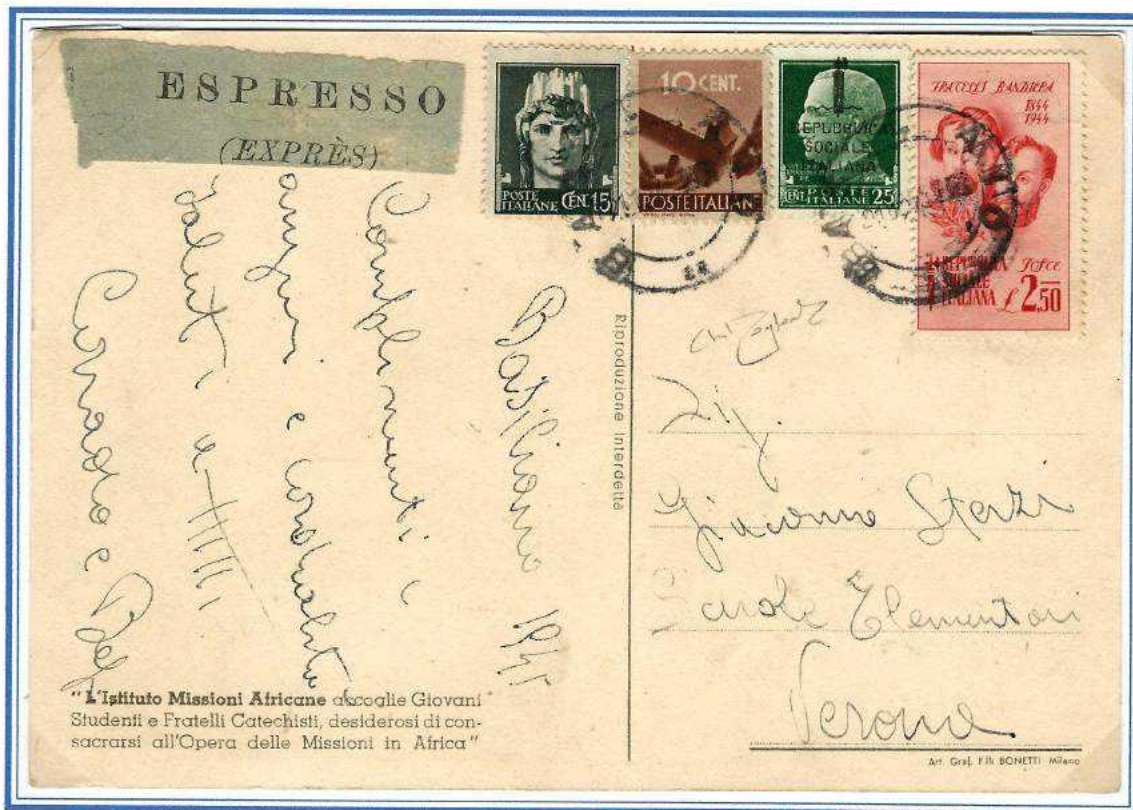 ESPRESSO
(EXPRÈS)
POSTE
ITALIANE CEN. 15
10 CENT.
POSTE ITALIANE
REPUBBLICA
SOCIALE
ITALIANA
CENT. POSTE
ITALIANE 25
FRATELLI BANDIERA
1844
1944
REPUBBLICA
SOCIALE
ITALIANA
£ 2,50
Basiliano 1945
Complimenti i
auguri e cordialità
saluti a
Corrado e
Riproduzione Interdetta
Sig.
Giacomo Sterzi
Scuole Elementari
Verona
"L'Istituto Missioni Africane accoglie Giovani
Studenti e Fratelli Catechisti, desiderosi di con-
sacrarsi all'Opera delle Missioni in Africa"
Art. Graf. F.lli BONETTI Milano